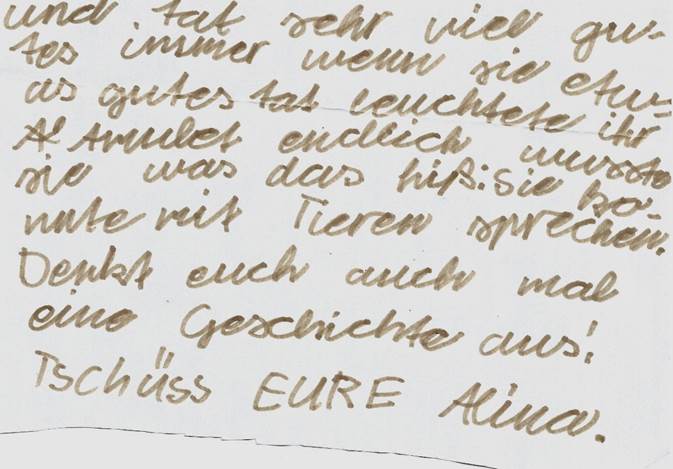 und tat sehr viel gu-
tes immer wenn sie etw-
as gutes tat leuchtete ihr
Amulet endlich wusste
sie was das hiß: sie ko-
nnte mit Tieren sprechen.
Denkt euch auch mal
eine Geschichte aus!
Tschüss EURE Alina.